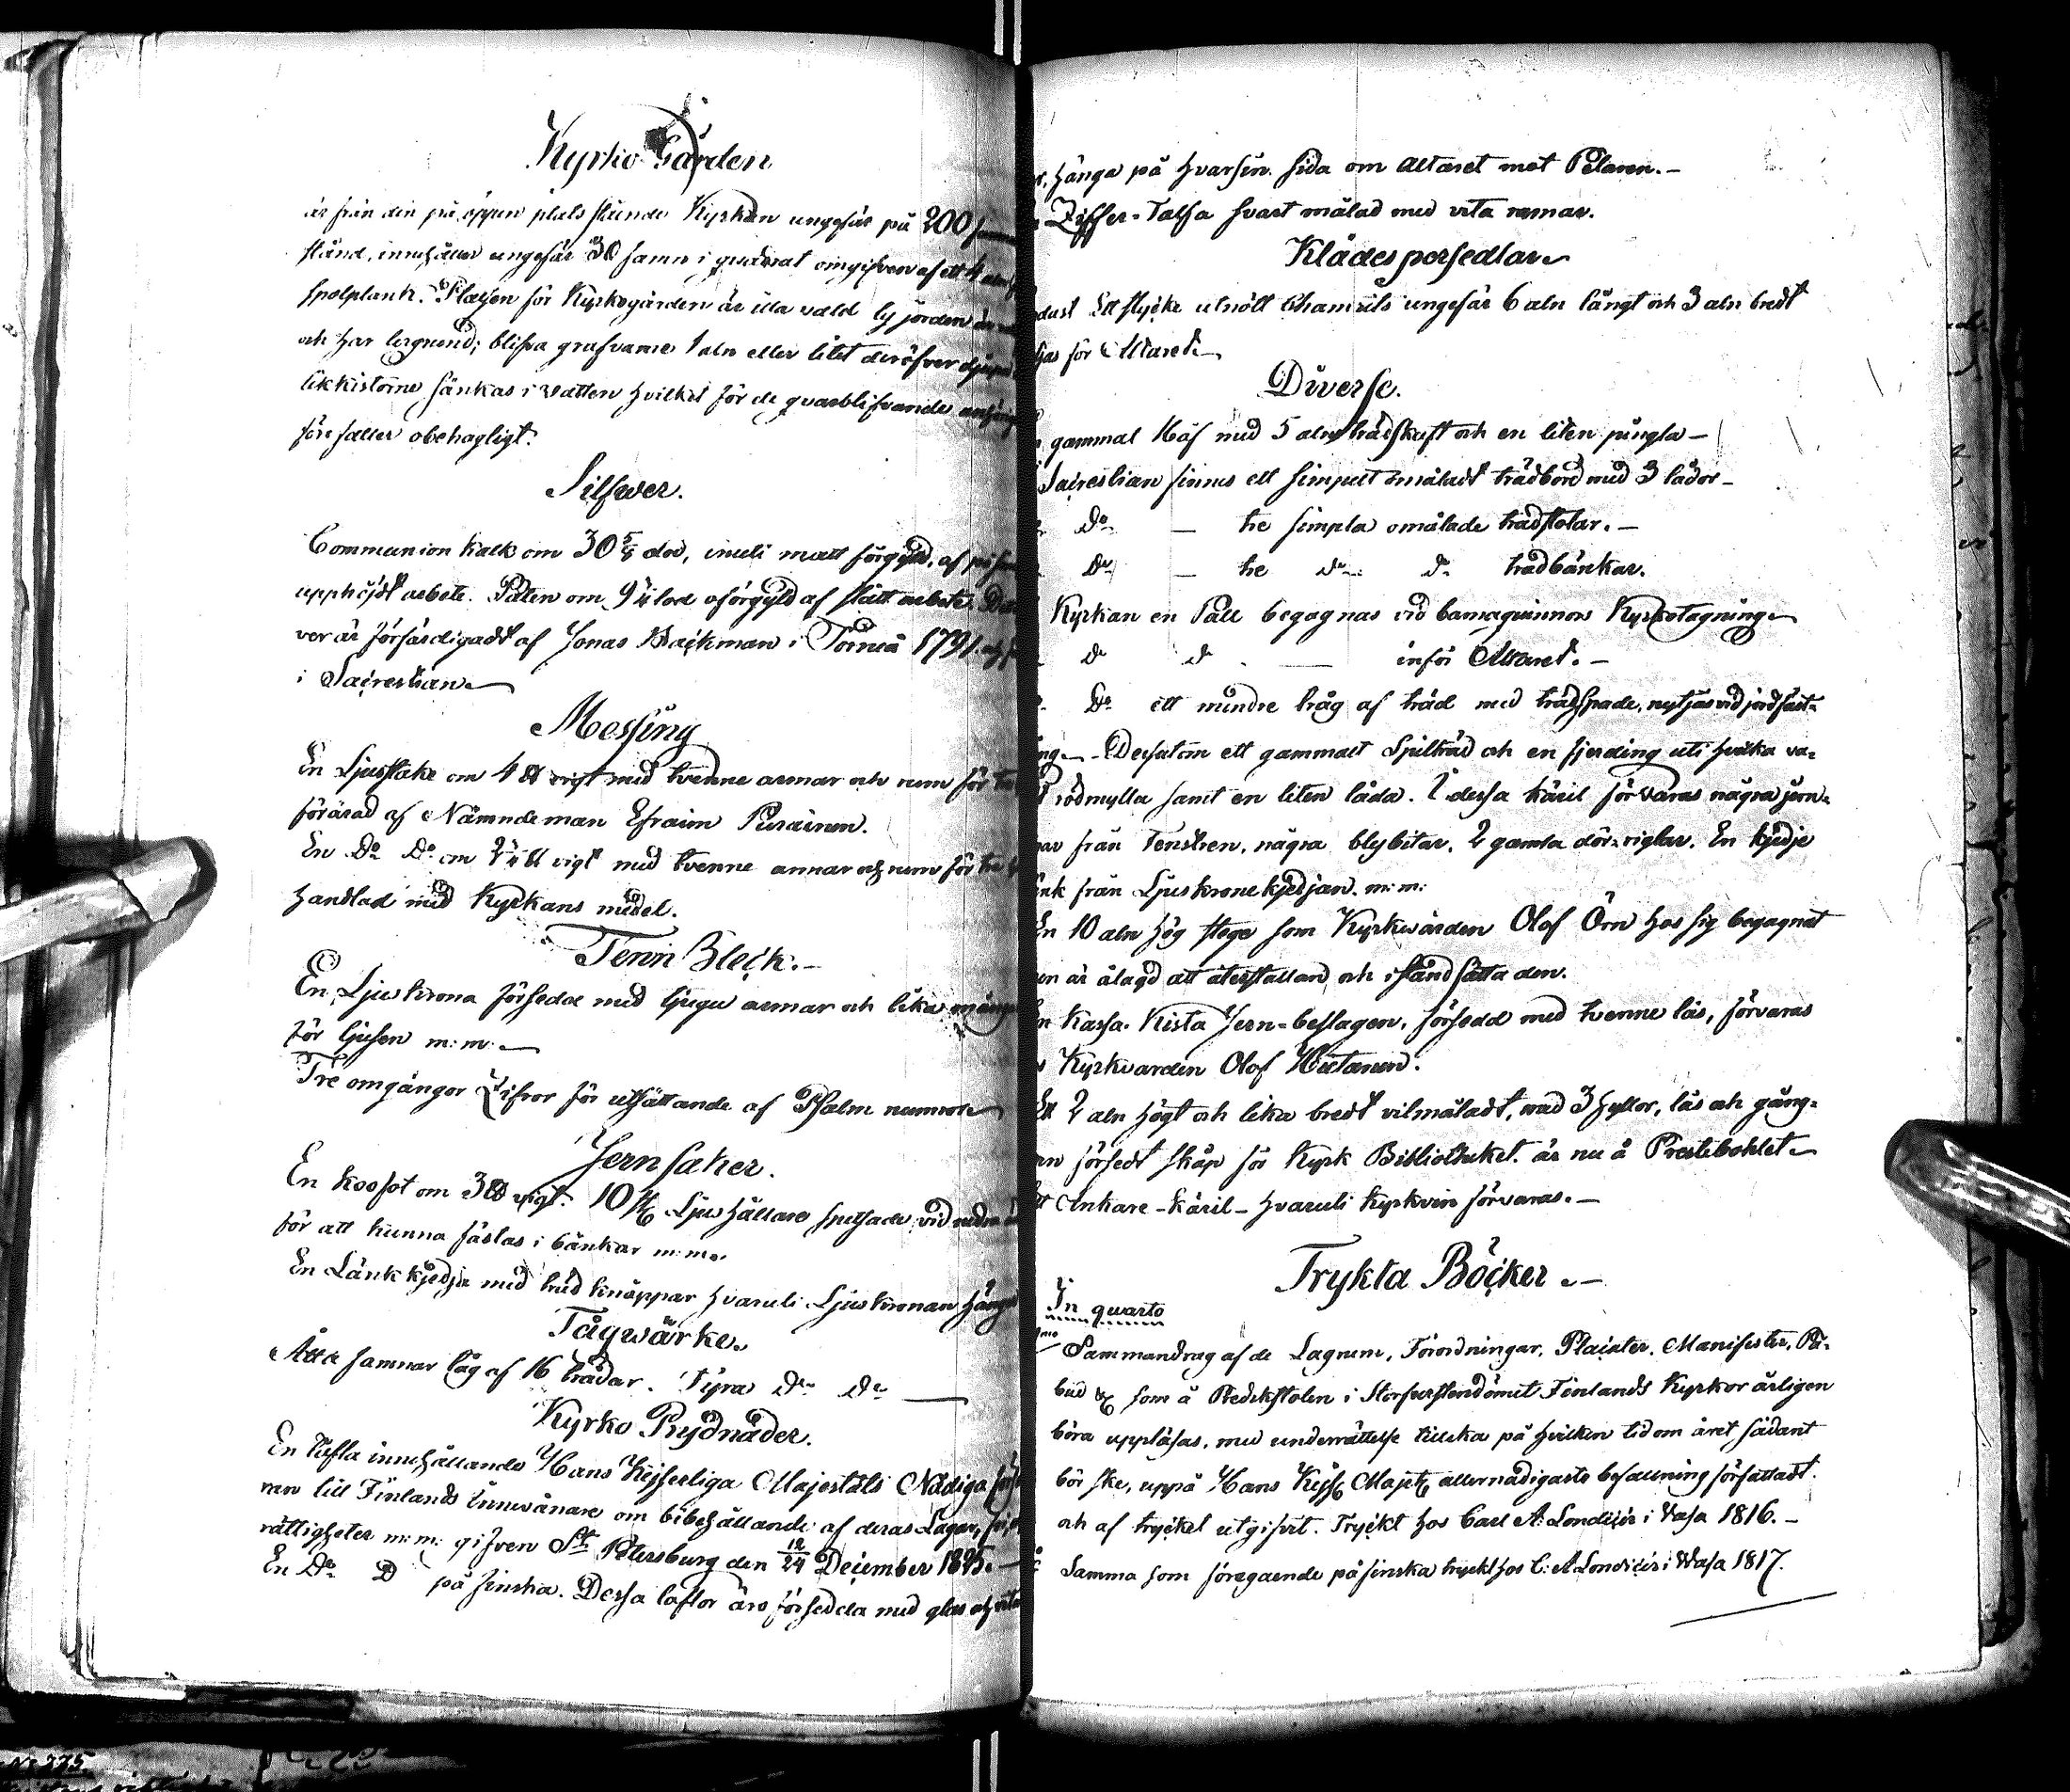 Kyrko Gården
är från den på öppen plats stående Kyrkan ungefär på 200
stånd, innehåller ungefär 30 famn i quadrat omgifven af ett 4 aln
spolplank. Platsen för Kyrkogården är illa vald ty jorden är
och har lergrund; blifva grafvarne 1 aln eller litet deröfver djupa
likkistorne sänkas i vatten hvilket för de qvarblifvande anhöriga
förefaller obehagligt.
Silfwer.
Communion kalk om 30 5/8 lod, inuti matt förgyld, af
upphöjdt arbete. Paten om 9 1/4 lod oförgyld af slätt arbete.
ver är förfärdigadt af Jonas Backman i Torneå 1791
i Sacrestian
Messing
En Ljusstake om 4 ℔ vigt med tvenne armar och rum för
förärad af Nämndeman Efraim Purainen.
En Do Do om 2 1/4 ℔ vigt med tvenne armar och rum för tre
handlad med Kyrkans medel.
Tenn Bleck.-
En Ljuskrona försedd med tjugu armar och lika många
för ljusen m: m:
Tre omgångor Zifror för utsättande af Psalm numror
Jernsaker.
En koofot om 3 ℔ vigt. 10 st Ljushållare spetsade vid nedra
för att kunna fästas i bänkar m: m.
En Länkkjedja med träd knäppar hvaruti Ljuskronan hänger
Tågwärke.
Åtta famnar tåg af 16 trådar. Fyra Do Do
Kyrko Prydnader.
En tafla innehållande Hans Kejserliga Majestäts Nådiga
ran till Finlands Innevånare om bibehållande af deras Lagar,
rättigheter m: m: gifven St Petersburg den 12/24 December 1825.
En Do D på finska. Dessa taflor äro försedda med glas och
hänga på hvarsin sida om Altaret mot Pelaren.-
Ziffer-Tafla svart målad med vita ramar.
Klädespersedlar
Ett stycke utnött ungefär 6 aln långt och 3 aln bredt
för Altaret
Diverse.
gammal Håf med 5 alns trädskaft och en liten pungla-
Sacrestian finnes ett simpelt omåladt trädbord med 3 lådor-
Do - tre simpla omålade trädstolar.-
Do - tre Do Do trädbänkar.
Kyrkan en Pall begagnas vid barnaqvinnors Kyrkotagning
D D - inför Altaret.-
Do ett mindre tråg af träd med trädspade, nyttjas vid jordfäst-
ning.- Dessutom ett gammalt Spilkräd och en fjerding uti hvilka va-
rödmylla samt en liten låda. I dessa käril förvaras några jern-
från fenstren, några blybitar, 2 gamla dör-riglar. En kjedje
från Ljuskronekjedjan. m: m:
En 10 aln hög stege som Kyrkvärden Olof Örn hos sig begagnat
är ålagd att återställand och iståndsätta den.
En Kassa-Kista Jern-beslagen, försedd med tvenne lås, förvaras
Kyrkvärden Olof Hietanen.
Ett 2 aln högt och lika bredt vilmåladt, med 3 hyllor, lås och gång-
försedt skåp för Kyrk Bibliotheket är nu å Prestebohlet
Ankare-käril- hvaruti Kyrkvin förvaras.-
Trykta Böcker.-
In quarto
Sammandrag af de Lagrum, Förordningar, Placater, Manifester, På-
bud &c som å Predikstolen i Storfurstendömet Finlands Kyrkor årligen
böra uppläsas, med underrättelse tillika på hvilken tid om året sådant
bör ske, uppå Hans Kejs Majts allernådigaste befallning författadt
och af trycket utgifvit. Tryckt hos Carl A: Londicer i Vasa 1816.-
Samma som föregaende på finska tryckt hos C: A Londicer i Wasa 1817.